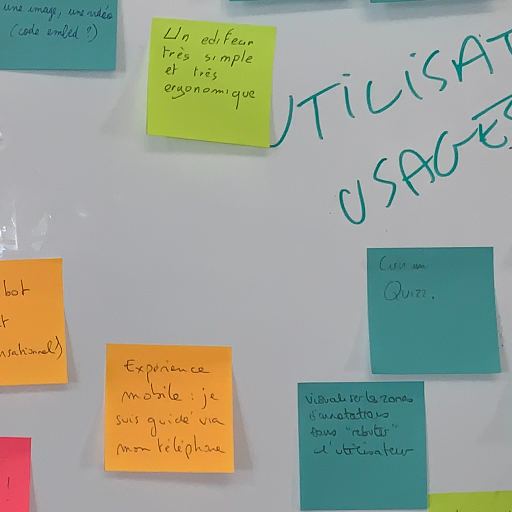 une image, une vidéo
(code embed ?)
Un editeur
très simple
et très
ergonomique
UTILISAT
USAGES
bot
nsationnel)
Créer un
Quizz.
Expérience
mobile : je
suis guidé via
mon téléphone
visualiser les zones
d'annotations
sans "rebuter"
l'utilisateur
!